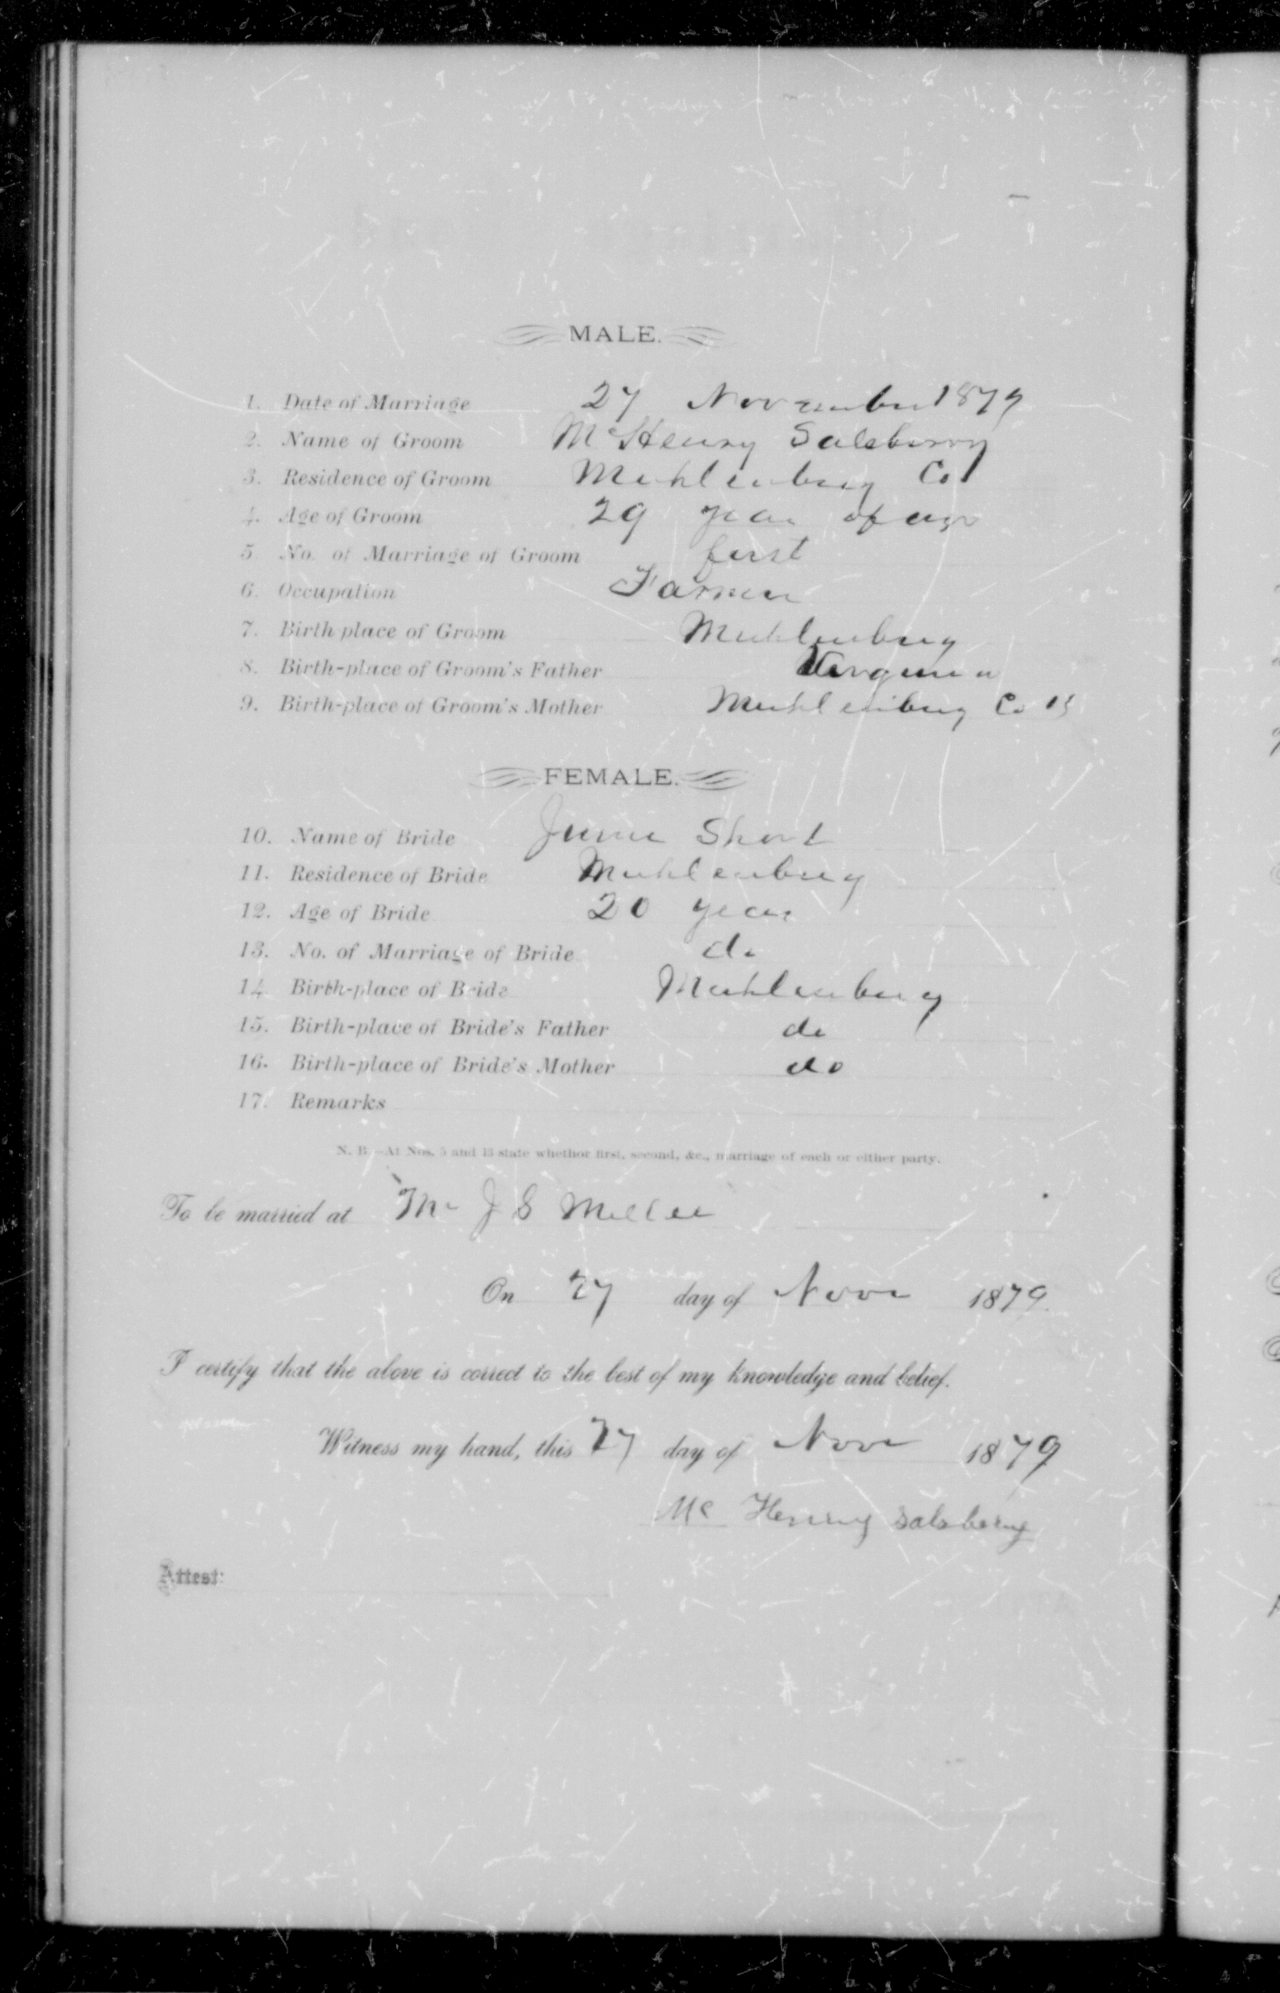 MALE.
1. Date of Marriage 27 November 1879
2. Name of Groom McHenry Salsberry
3. Residence of Groom Muhlenburg Co
4. Age of Groom 29 year of age
5. No. of Marriage of Groom first
6. Occupation Farmer
7. Birth-place of Groom Muhlenburg
8. Birth-place of Groom's Father Virginia
9. Birth-place of Groom's Mother Muhlenburg Co
FEMALE.
10. Name of Bride Short
11. Residence of Bride Muhlenburg
12. Age of Bride 20 years
13. No. of Marriage of Bride do
14. Birth-place of Bride Muhlenburg
15. Birth-place of Bride's Father do
16. Birth-place of Bride's Mother do
17. Remarks
N. B.—At Nos. 5 and 13 state whether first, second, &c., marriage of each or either party.
To be married at Mr J S Miller
On 27 day of Nov 1879.
I certify that the above is correct to the best of my knowledge and belief.
Witness my hand, this 27 day of Nov 1879
Mc Henry Salsberry
Attest: